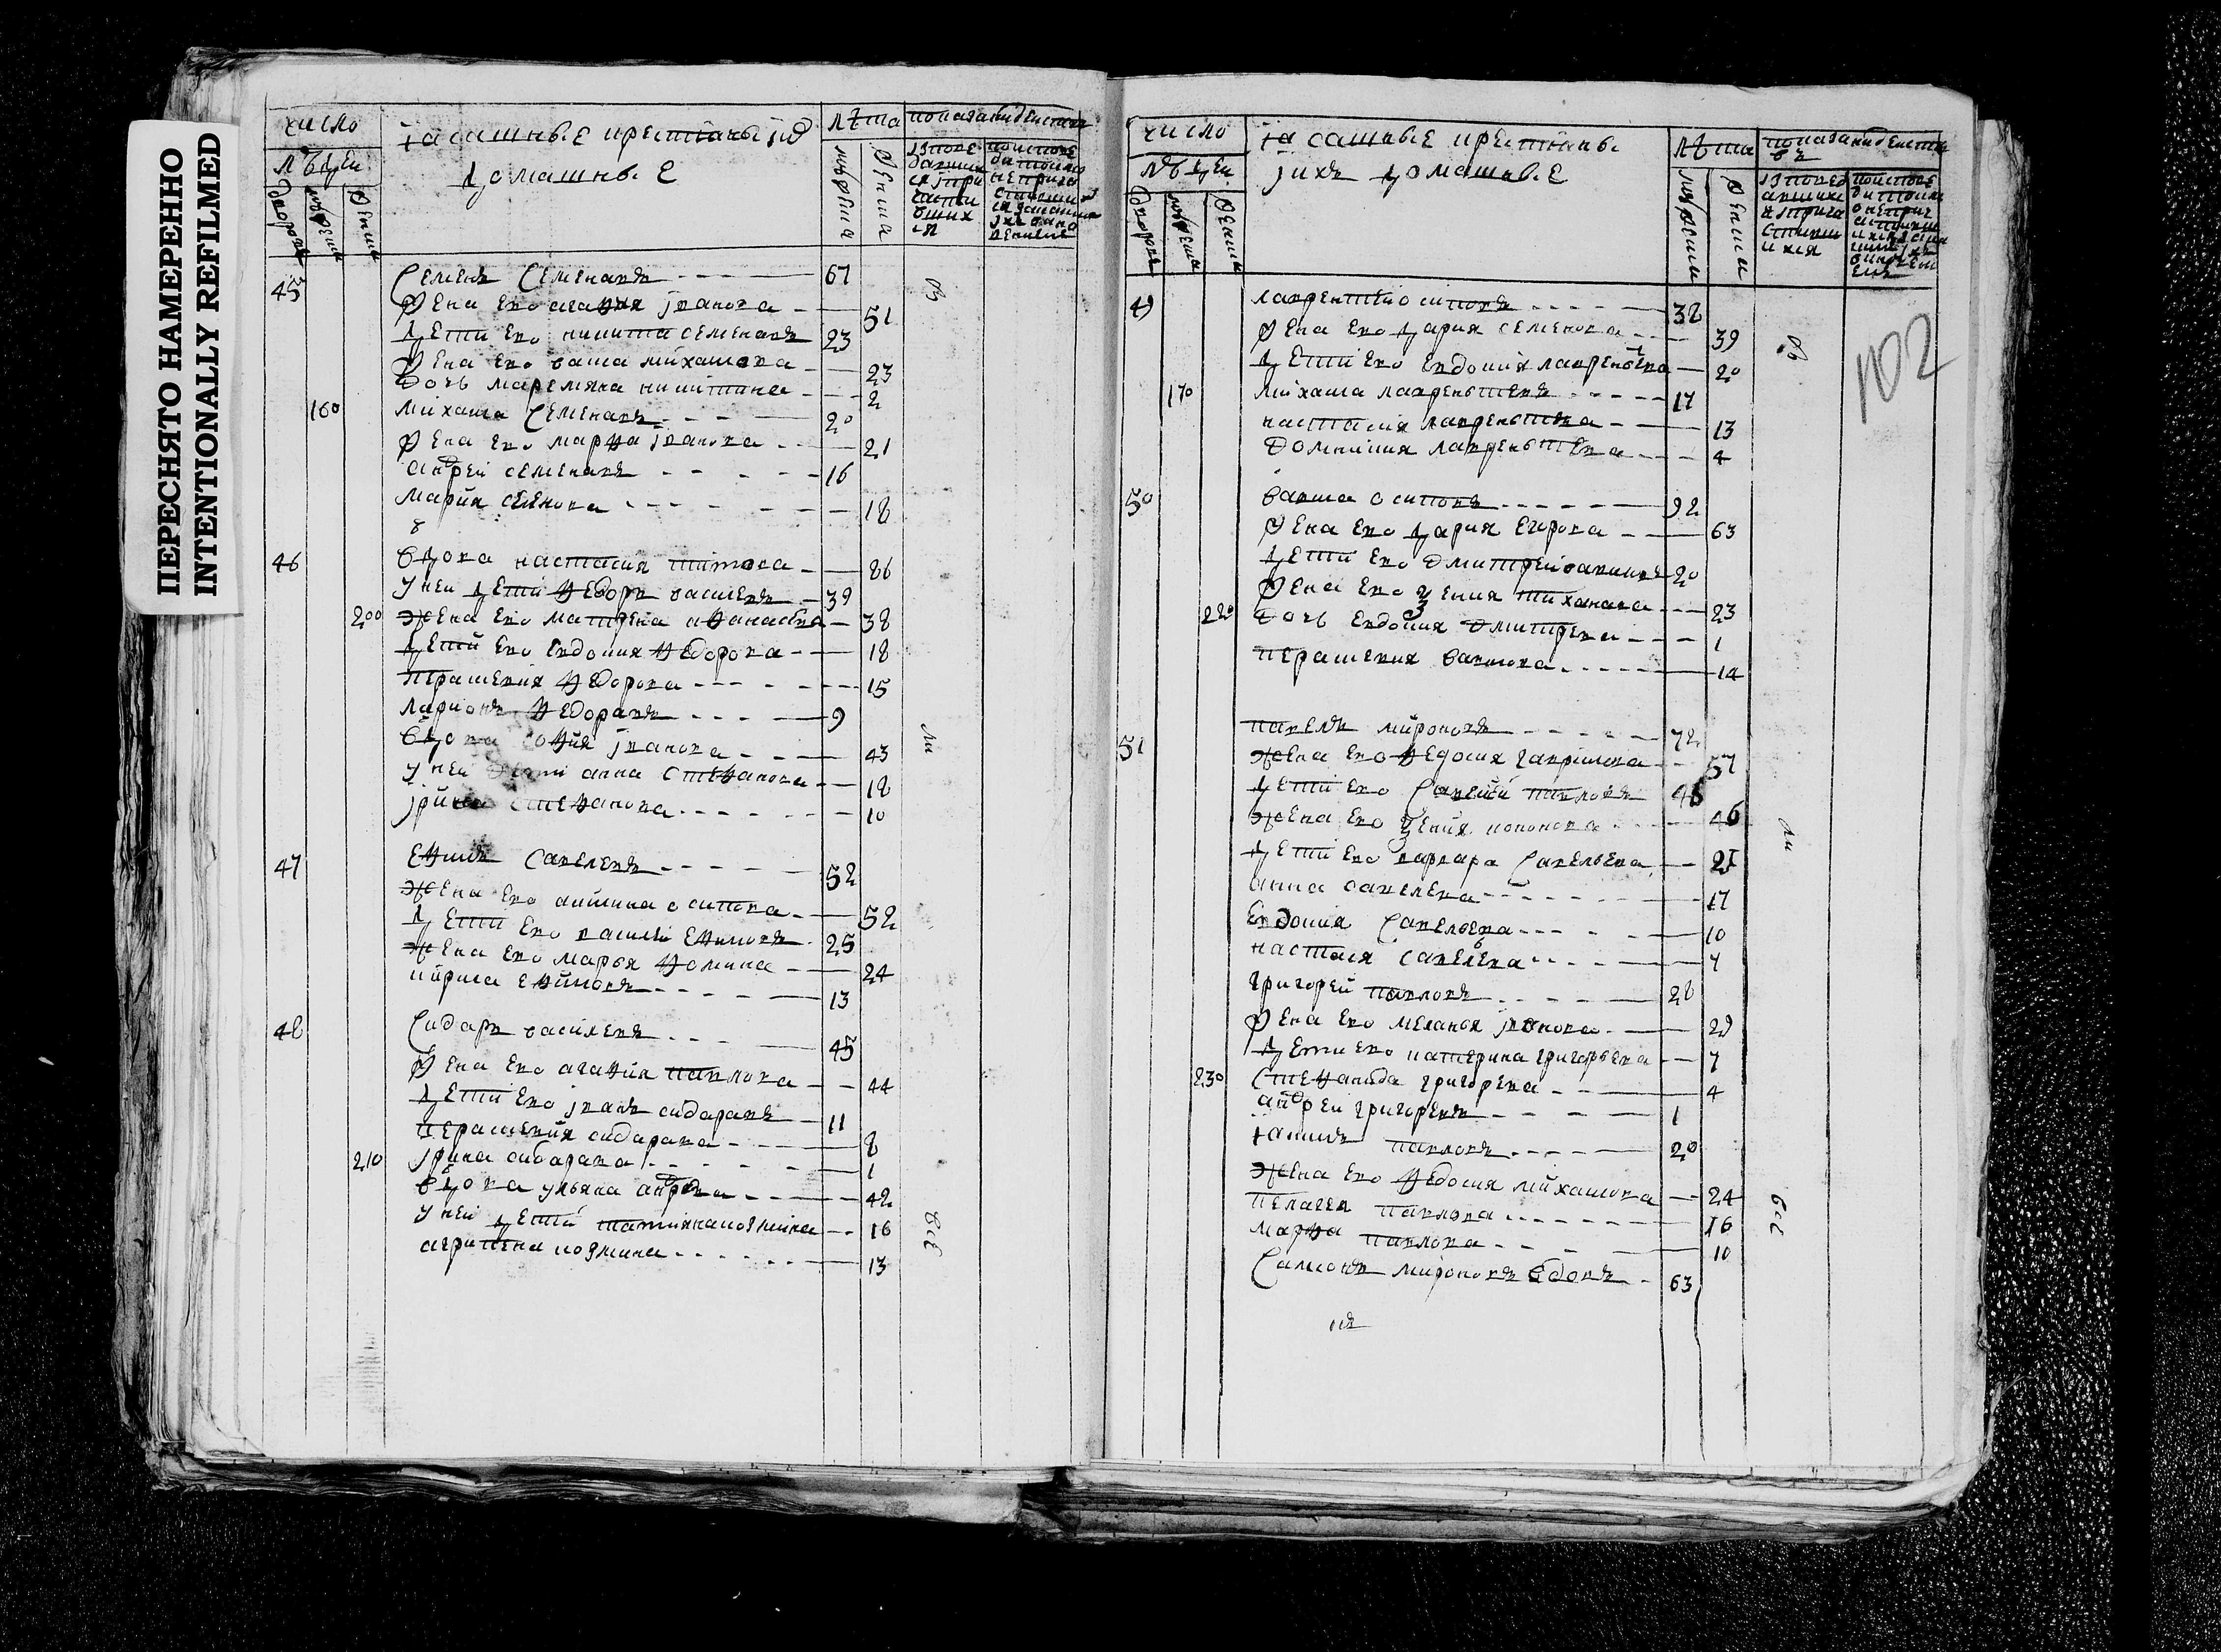 ПЕРЕСНЯТО НАМЕРЕННО
INTENTIONALLY REFILMED
число
людеи
ясашные крестьяны их
домашные
лѣта
дворовъ
мужеска
женска
45
Семенъ Семеновъ 67
жена ево агафия иванова 51
дети ево никита семеновъ 23
жена ево васса михаилова 23
дочь маремяна никитина 2
160
михаила Семеновъ 20
жена ево марфа иванова 21
андрей семеновъ 16
мария семенова 18
46
вдова настасия титова 86
у ней дети федоръ василевъ 39
200
жена ево матрена афанасева 38
дети ево евдокия федорова 18
прасковия федорова 15
ларионъ федоровъ 9
вдова софия иванова 43
у ней дети анна степанова 18
ирина степанова 10
47
ефимъ савелевъ 52
жена ево акилина осипова 52
дети ево василеи ефимовъ 25
жена ево марья фомина 24
кирила ефимовъ 13
48
Сидаръ василевъ 45
жена ево агафия павлова 44
дети ево иванъ сидаровъ 11
перасковия сидарова 8
210
ирина сидарова 1
вдова ульяна андреева 42
у ней дети татияна козмина 16
агрипена козмина 13
число
людеи
ясашные крестьяны
ихъ домашные
лѣта
дворовъ
мужеска
женска
102
49
лаврентей осиповъ 38
жена ево дария семенова 39
дети ево евдокия лаврентьева 20
170
михаила лаврентьевъ 17
настасия лаврентьева 13
домникия лаврентьева 4
50
вавила осиповъ 92
жена ево дария егорова 63
дети ево дмитрей вавиловъ 20
жена ево ксения тиханова 23
220
дочь евдокия дмитрева 1
перасковия вавилова 14
51
павелъ мироновъ 72
жена ево федосия гаврилова 57
дети ево савелий павловъ 48
жена ево ксения кононова 46
дети ево варвара савельева 21
анна савелева 17
евдокия савельева 10
настасия савелева 7
григорей павловъ 28
жена ево меланья иванова 29
дети ево катерина григорьева 7
230
степанида григорева 4
андрей григоревъ 1
якимъ павловъ 20
жена ево федосия михаилова 24
пелагея павлова 16
марфа павлова 10
Самсонъ мироновъ вдовъ 63